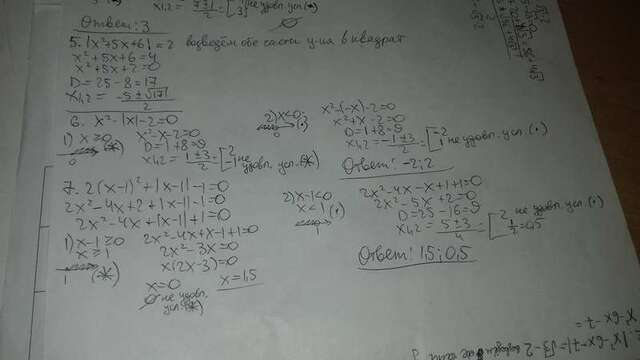 Ответ: 3
5. |x²+5x+6|=2 возведём обе части ур-ия в квадрат
x²+5x+6=4
x²+5x+2=0
D=25-8=17
x₁,₂=(-5±√17)/2
6. x²-|x|-2=0
1) x≥0 (*)
0
x²-x-2=0
D=1+8=9
x₁,₂=(1±3)/2=[2
-1 не удовл. усл. (*)
2) x<0
0
x²-(-x)-2=0
x²+x-2=0
D=1+8=9
x₁,₂=(-1±3)/2=[-2
1 не удовл. усл. (•)
Ответ: -2; 2
7. 2(x-1)²+|x-1|-1=0
2x²-4x+2+|x-1|-1=0
2x²-4x+|x-1|+1=0
1) x-1≥0
x≥1
1 (*)
2x²-4x+x-1+1=0
2x²-3x=0
x(2x-3)=0
x=0 x=1,5
не удовл.
усл. (*)
2) x-1<0
x<1 (•)
1
2x²-4x-x+1+1=0
2x²-5x+2=0
D=25-16=9
x₁,₂=(5±3)/4=[2 не удовл. усл. (•)
1/2=0,5
Ответ: 1,5; 0,5
x²-6x-7=